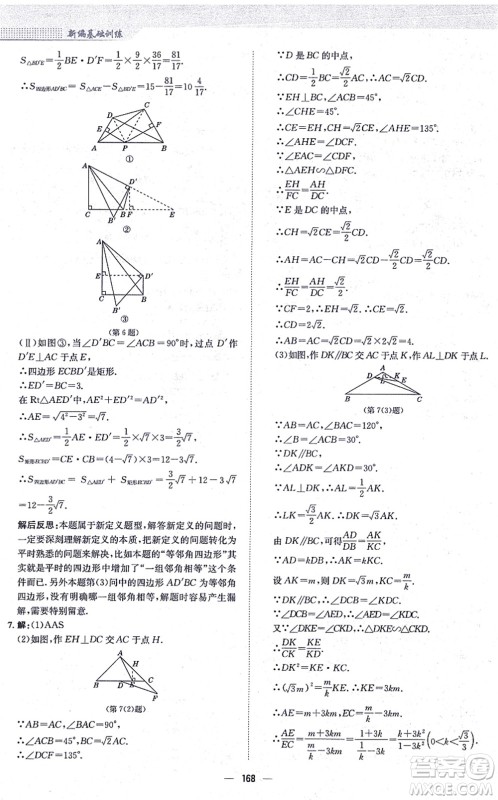 新编基础训练
S△BD′E=1/2 BE·D′F=1/2×9/2×36/17=81/17
∴S四边形AD′BC=S△ACE-S△BD′E=15-81/17=10 4/17.
D C E F A P B
①
A D′ C B F E B′
②
A E D′ C B B′
③
(第6题)
(Ⅱ)如图③,当∠D′BC=∠ACB=90°时,过点D′作
D′E⊥AC于点E,
∴四边形ECBD′是矩形.
∴ED′=BC=3.
在Rt△AED′中,AE²+ED′²=AD′²,
∴AE=√(4²-3²)=√7.
∴S△AED′=1/2 AE·ED′=1/2×√7×3=3/2√7.
S矩形ECBD′=CE·CB=(4-√7)×3=12-3√7
∴S四边形ACBD′=S△AED′+S矩形ECBD′=3/2√7+12-3√7
=12-3/2√7.
解后反思:本题属于新定义题型,解答新定义的问题时,
一定要深刻理解新定义的内涵,将不熟悉的问题转化为
平时熟悉的问题去解决,比如本题的“等邻角四边形”
其实就是平时的四边形中增加了“一组邻角相等”这个
条件而已.另外本题第(3)问中的四边形AD′BC为等邻角
四边形,没有明确哪一组邻角相等,解题时容易产生漏
解,需要特别留意.
7.解:(1)AAS
(2)如图,作EH⊥DC交AC于点H,
A H B D E C F
(第7(2)题)
∵AB=AC,∠BAC=90°,
∴∠ACB=45°,∴∠DCF=135°.
∵D是BC的中点,
∴CD=1/2BC=√2/2AC.
∵EH⊥BC,∠ACB=45°,
∴CH=√2CE.
∴∠AHE=135°.
∴∠AHE=∠DCF.
∵∠EAC=∠FDC,
∴△AEH∽△DFC.
∴EH/FC=AH/DC.
∵E是DC的中点,
∴CH=√2CE=√2/2CD=1/2AC.
∴AH=AC-CH=√2/2CD.
∴EH/FC=AH/DC=√2/2.
∵CF=2,∴CH=√2.
∴EH=CE=√2.
∴AB=AC=√2CD=√2×2√2=4.
(3)如图,作DK∥AB交AC于点K,作AL⊥DK于点L.
A K L E B D C
(第7(3)题)
∵AB=AC,∠BAC=120°,
∴∠B=∠ACB=30°.
∵DK∥AB,∴∠AKL=30°.
∵AL⊥DK,∴AL=1/2AK.
∴LK=√3/2AK,∴DK=√3AK.
由DK∥AB,可得AK/AD=DK/KB.
∵AD=kDB,∴AK=kKC.
设AK=m,则DK=√3m,KC=m/k.
∵∠BDC=∠ACD,
∵∠KDE=∠ACD,∠DKE=∠CKD,
∴△DKE∽△CKD.∴DK/CK=KE/KD.
∴DK²=CK·KE.
∴(√3m)²=m/k·KE,∴KE=3km.
∴AE=m+3km,EC=m/k-3km.
∴AE/EC=(m+3km)/(m/k-3km)=(1+3k)/(1/k-3k)=(k+3k²)/(1-3k²)(0<k<√3/3)
168